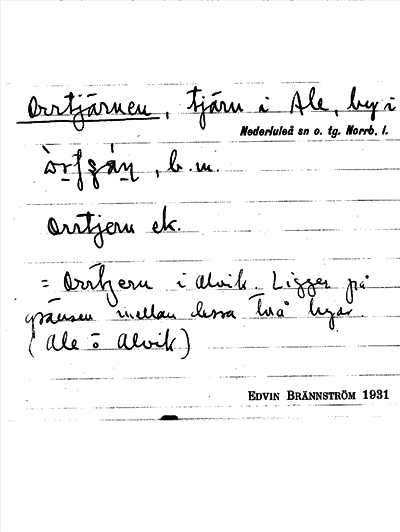 Orrtjärnen, tjärn i Ale, by i
Nederluleå sn o. tg. Norrb. l.
, b. m.
Orrtjern ek.
= Orrtjern i Alvik. Ligger på
gränsen mellan dessa två byar
(Ale o Alvik)
EDVIN BRÄNNSTRÖM 1931